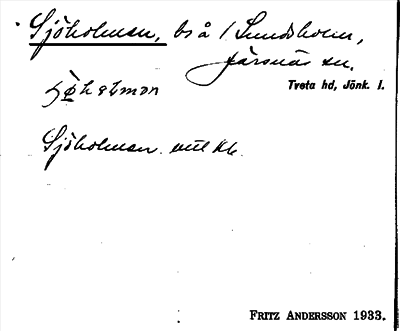 Sjöholmen, bs å / Sundsholm,
Järsnäs sn.
Tveta hd, Jönk. l.
Sjöholmen. utt Kk.
FRITZ ANDERSSON 1933.